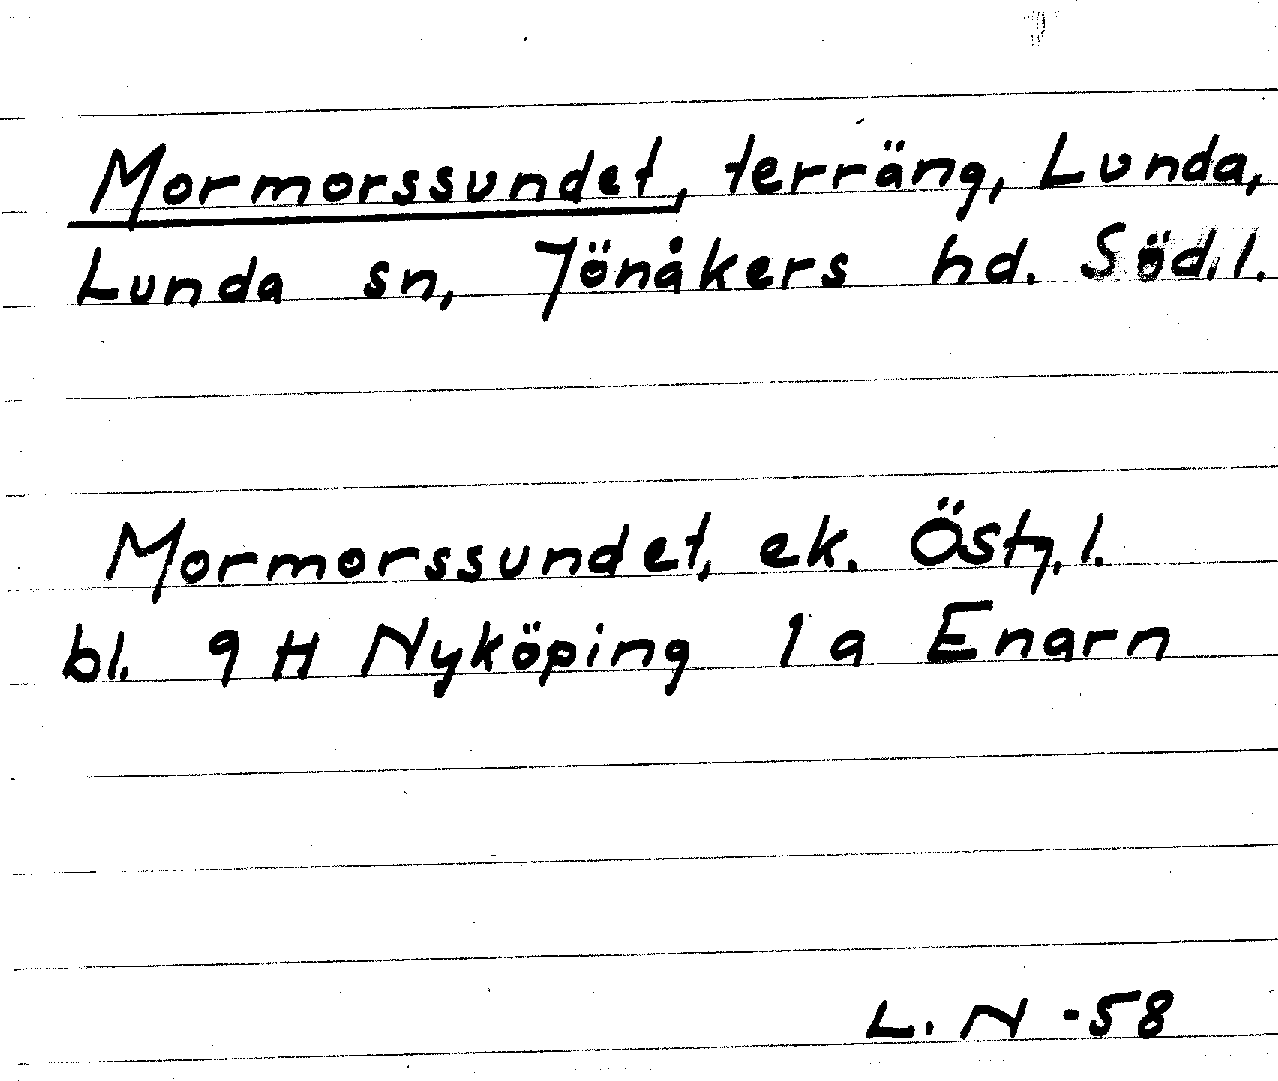 Mormorssundet, terräng, Lunda,
Lunda sn, Jönåkers hd. Söd.l.
Mormorssundet, ek. Östg.l.
bl. 9 H Nyköping 1 a Enarn
L. N -58